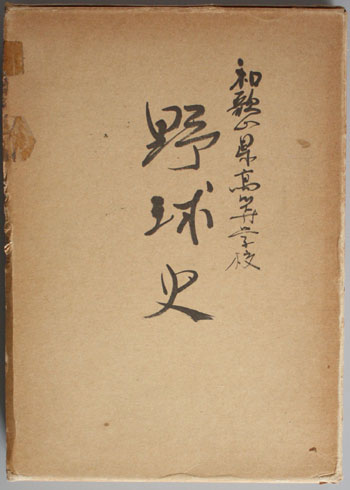 和歌山県高等学校
野球史